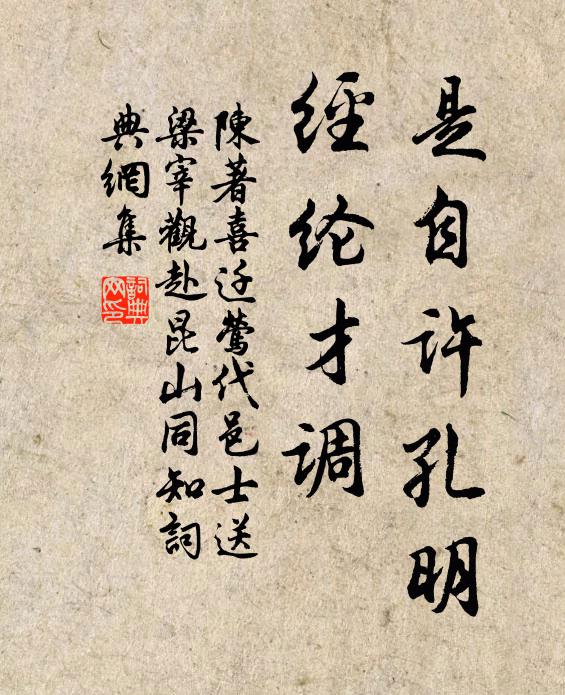 是自许孔明
經纶才调
陳著喜迁鶯代邑士送
梁宰觀赴昆山同知詞
典網集
詞典
网印